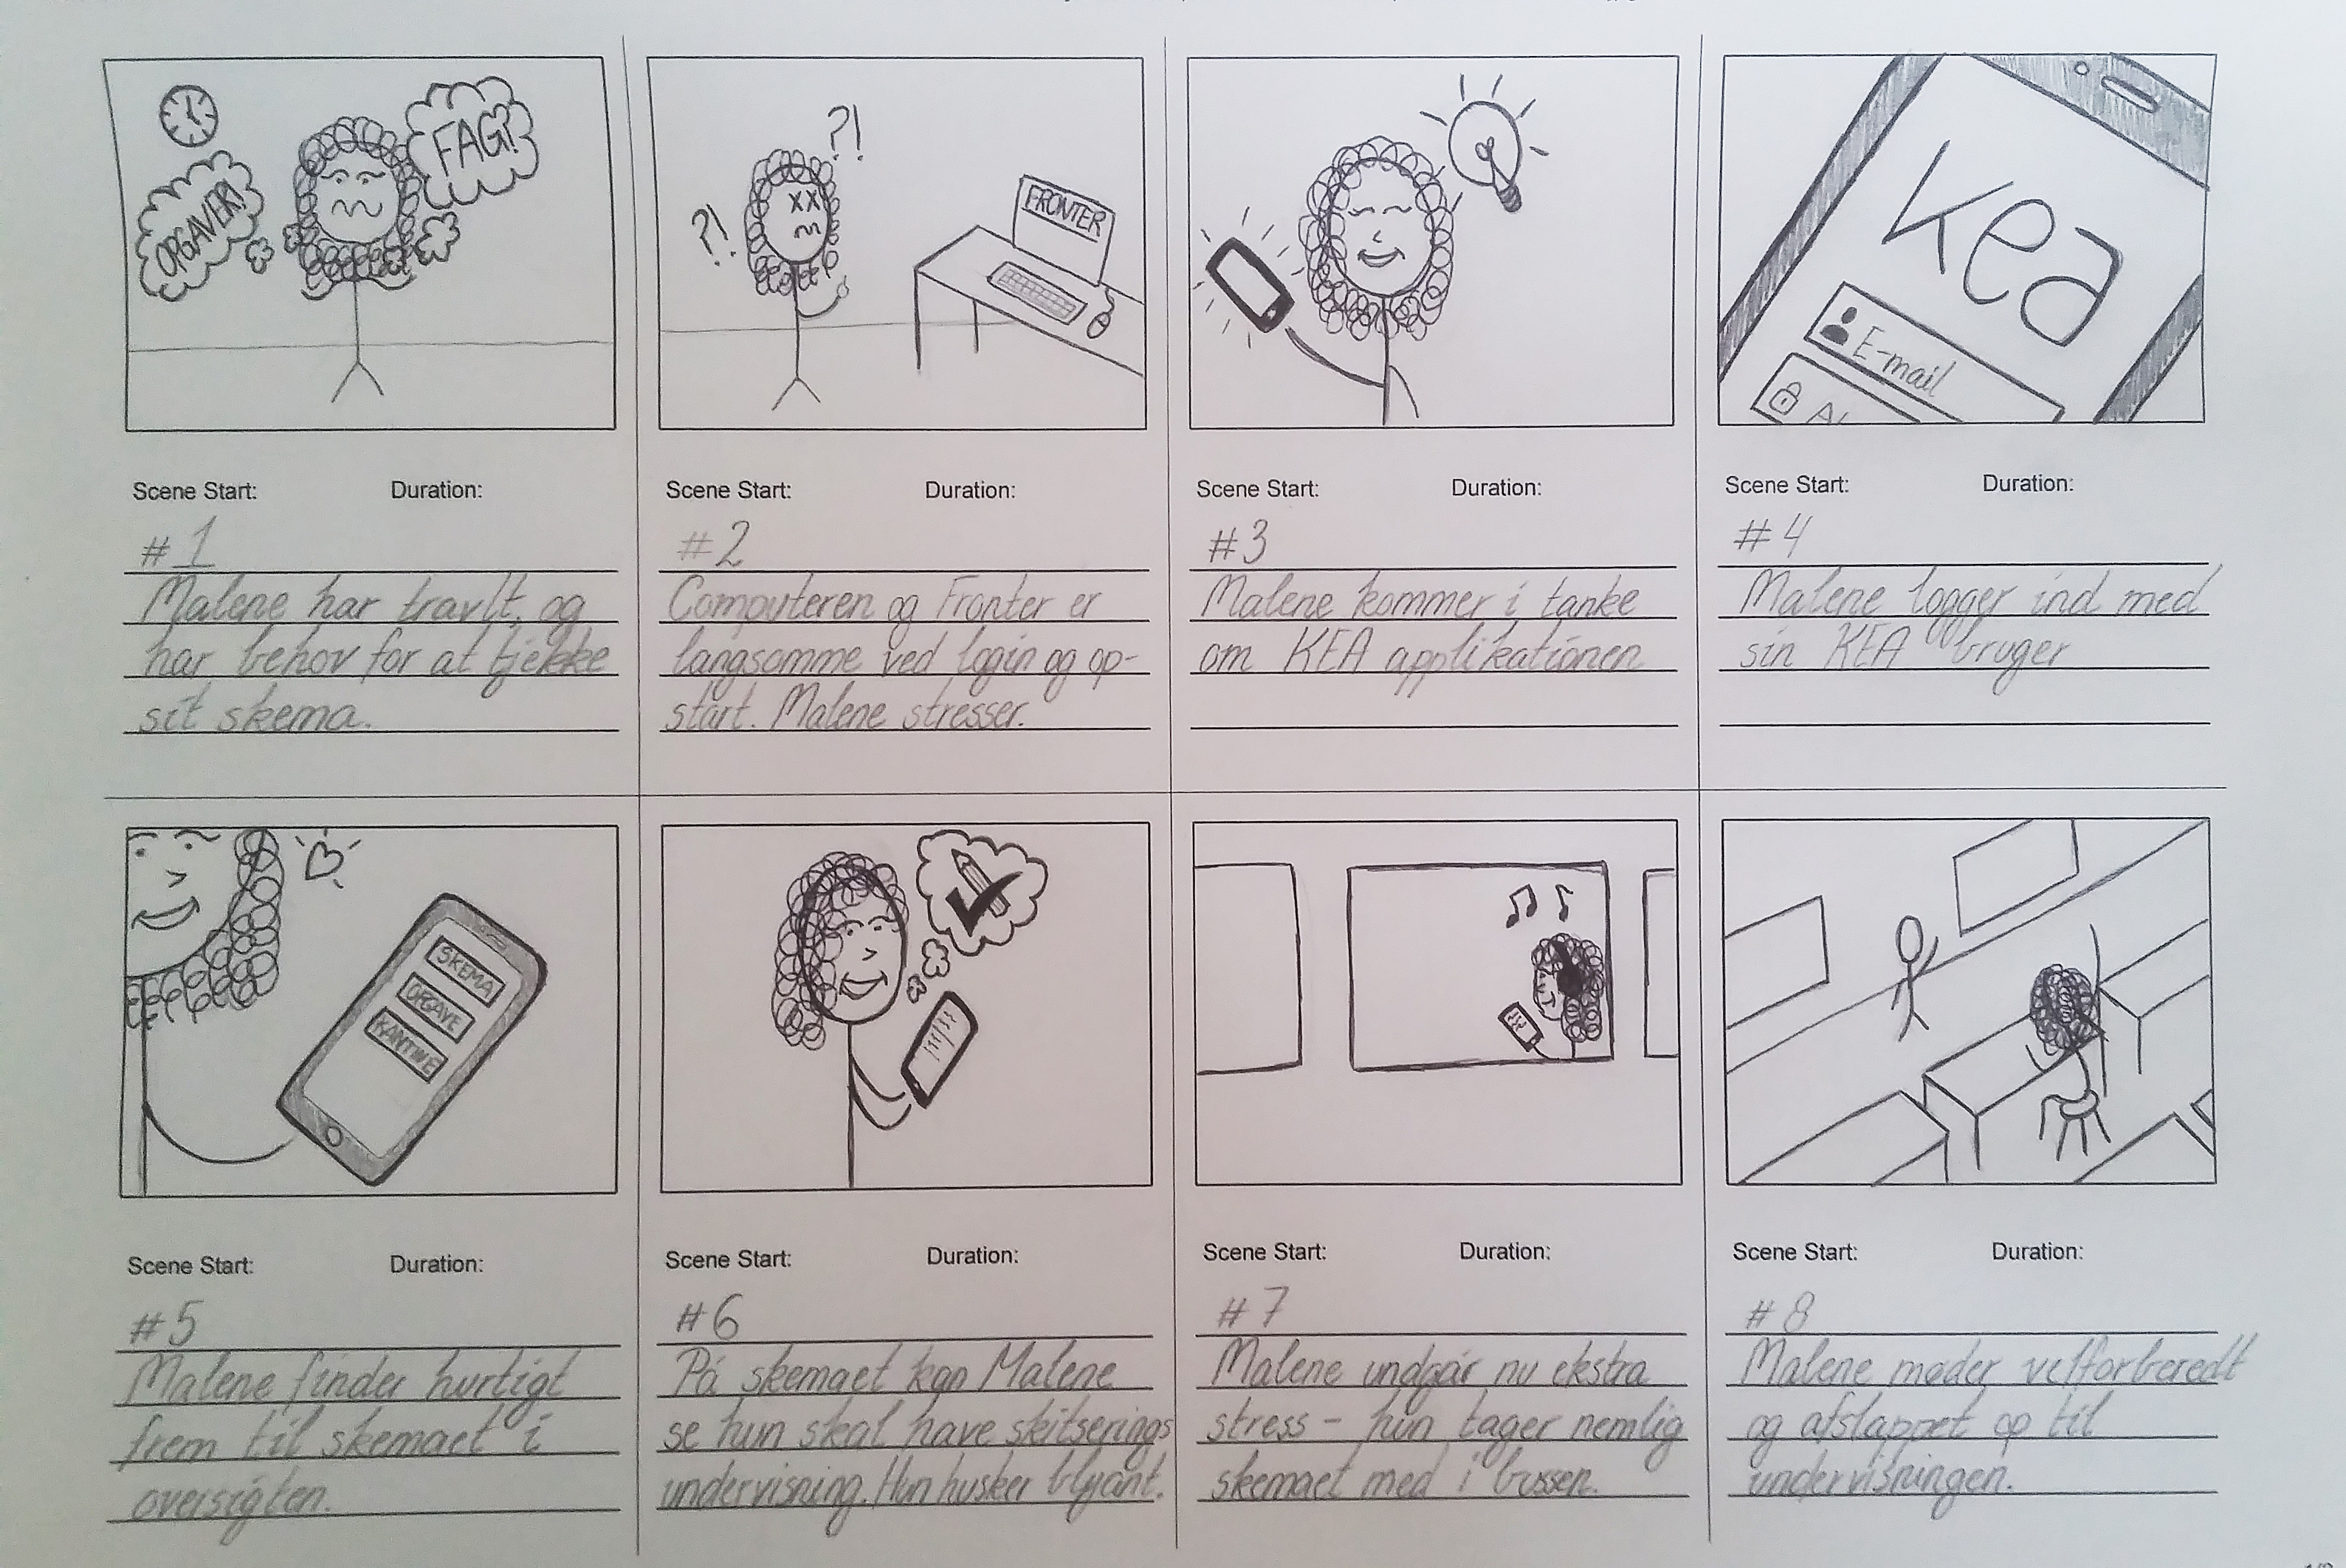 OPGAVER!
FAG!?
?!
?!
FRONTER
kea
E-mail
Scene Start: Duration:
#1
Malene har travlt, og
har behov for at tjekke
sit skema.
Scene Start: Duration:
#2
Computeren og Fronter er
langsomme ved login og op-
start. Malene stresser.
Scene Start: Duration:
#3
Malene kommer i tanke
om KEA applikationen
Scene Start: Duration:
#4
Malene logger ind med
sin KEA bruger
SKEMA
OPGAVE
KANTINE
Scene Start: Duration:
#5
Malene finder hurtigt
frem til skemaet i
oversigten.
Scene Start: Duration:
#6
På skemaet kan Malene
se hun skal have skitserings
undervisning. Hun husker blyant.
Scene Start: Duration:
#7
Malene undgår nu ekstra
stress – hun tager nemlig
skemaet med i bussen.
Scene Start: Duration:
#8
Malene møder velforberedt
og afslappet op til
undervisningen.